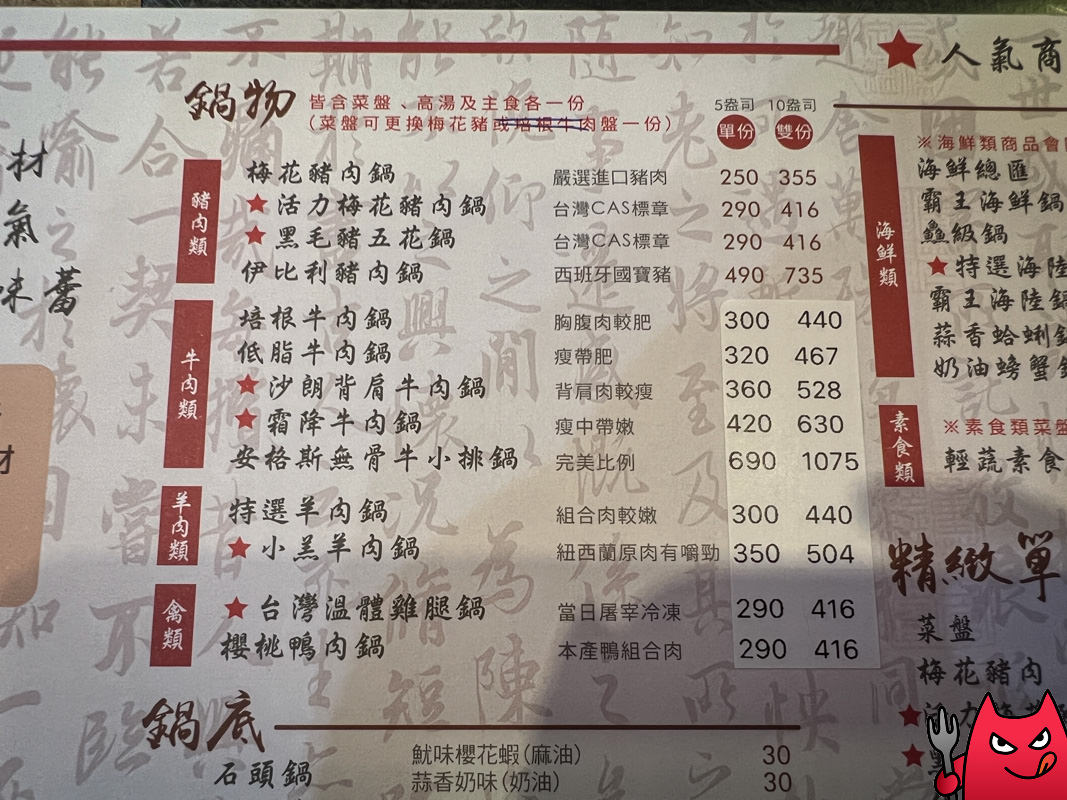 材
氣
味蕾
材
鍋物
皆含菜盤、高湯及主食各一份
(菜盤可更換梅花豬或培根牛肉盤一份)
5盎司 10盎司
單份 雙份
豬肉類
梅花豬肉鍋 嚴選進口豬肉 250 355
★活力梅花豬肉鍋 台灣CAS標章 290 416
★黑毛豬五花鍋 台灣CAS標章 290 416
伊比利豬肉鍋 西班牙國寶豬 490 735
牛肉類
培根牛肉鍋 胸腹肉較肥 300 440
低脂牛肉鍋 瘦帶肥 320 467
★沙朗背肩牛肉鍋 背肩肉較瘦 360 528
★霜降牛肉鍋 瘦中帶嫩 420 630
安格斯無骨牛小排鍋 完美比例 690 1075
羊肉類
特選羊肉鍋 組合肉較嫩 300 440
★小羔羊肉鍋 紐西蘭原肉有嚼勁 350 504
禽類
★台灣溫體雞腿鍋 當日屠宰冷凍 290 416
櫻桃鴨肉鍋 本產鴨組合肉 290 416
鍋底
石頭鍋
魷味櫻花蝦(麻油) 30
蒜香奶味(奶油) 30
★人氣商
海鮮類
※海鮮類商品會
海鮮總匯
霸王海鮮鍋
鱻級鍋
★特選海陸
霸王海陸鍋
蒜香蛤蜊鍋
奶油螃蟹鍋
素食類
※素食類菜盤
輕蔬素食
精緻單
菜盤
梅花豬肉